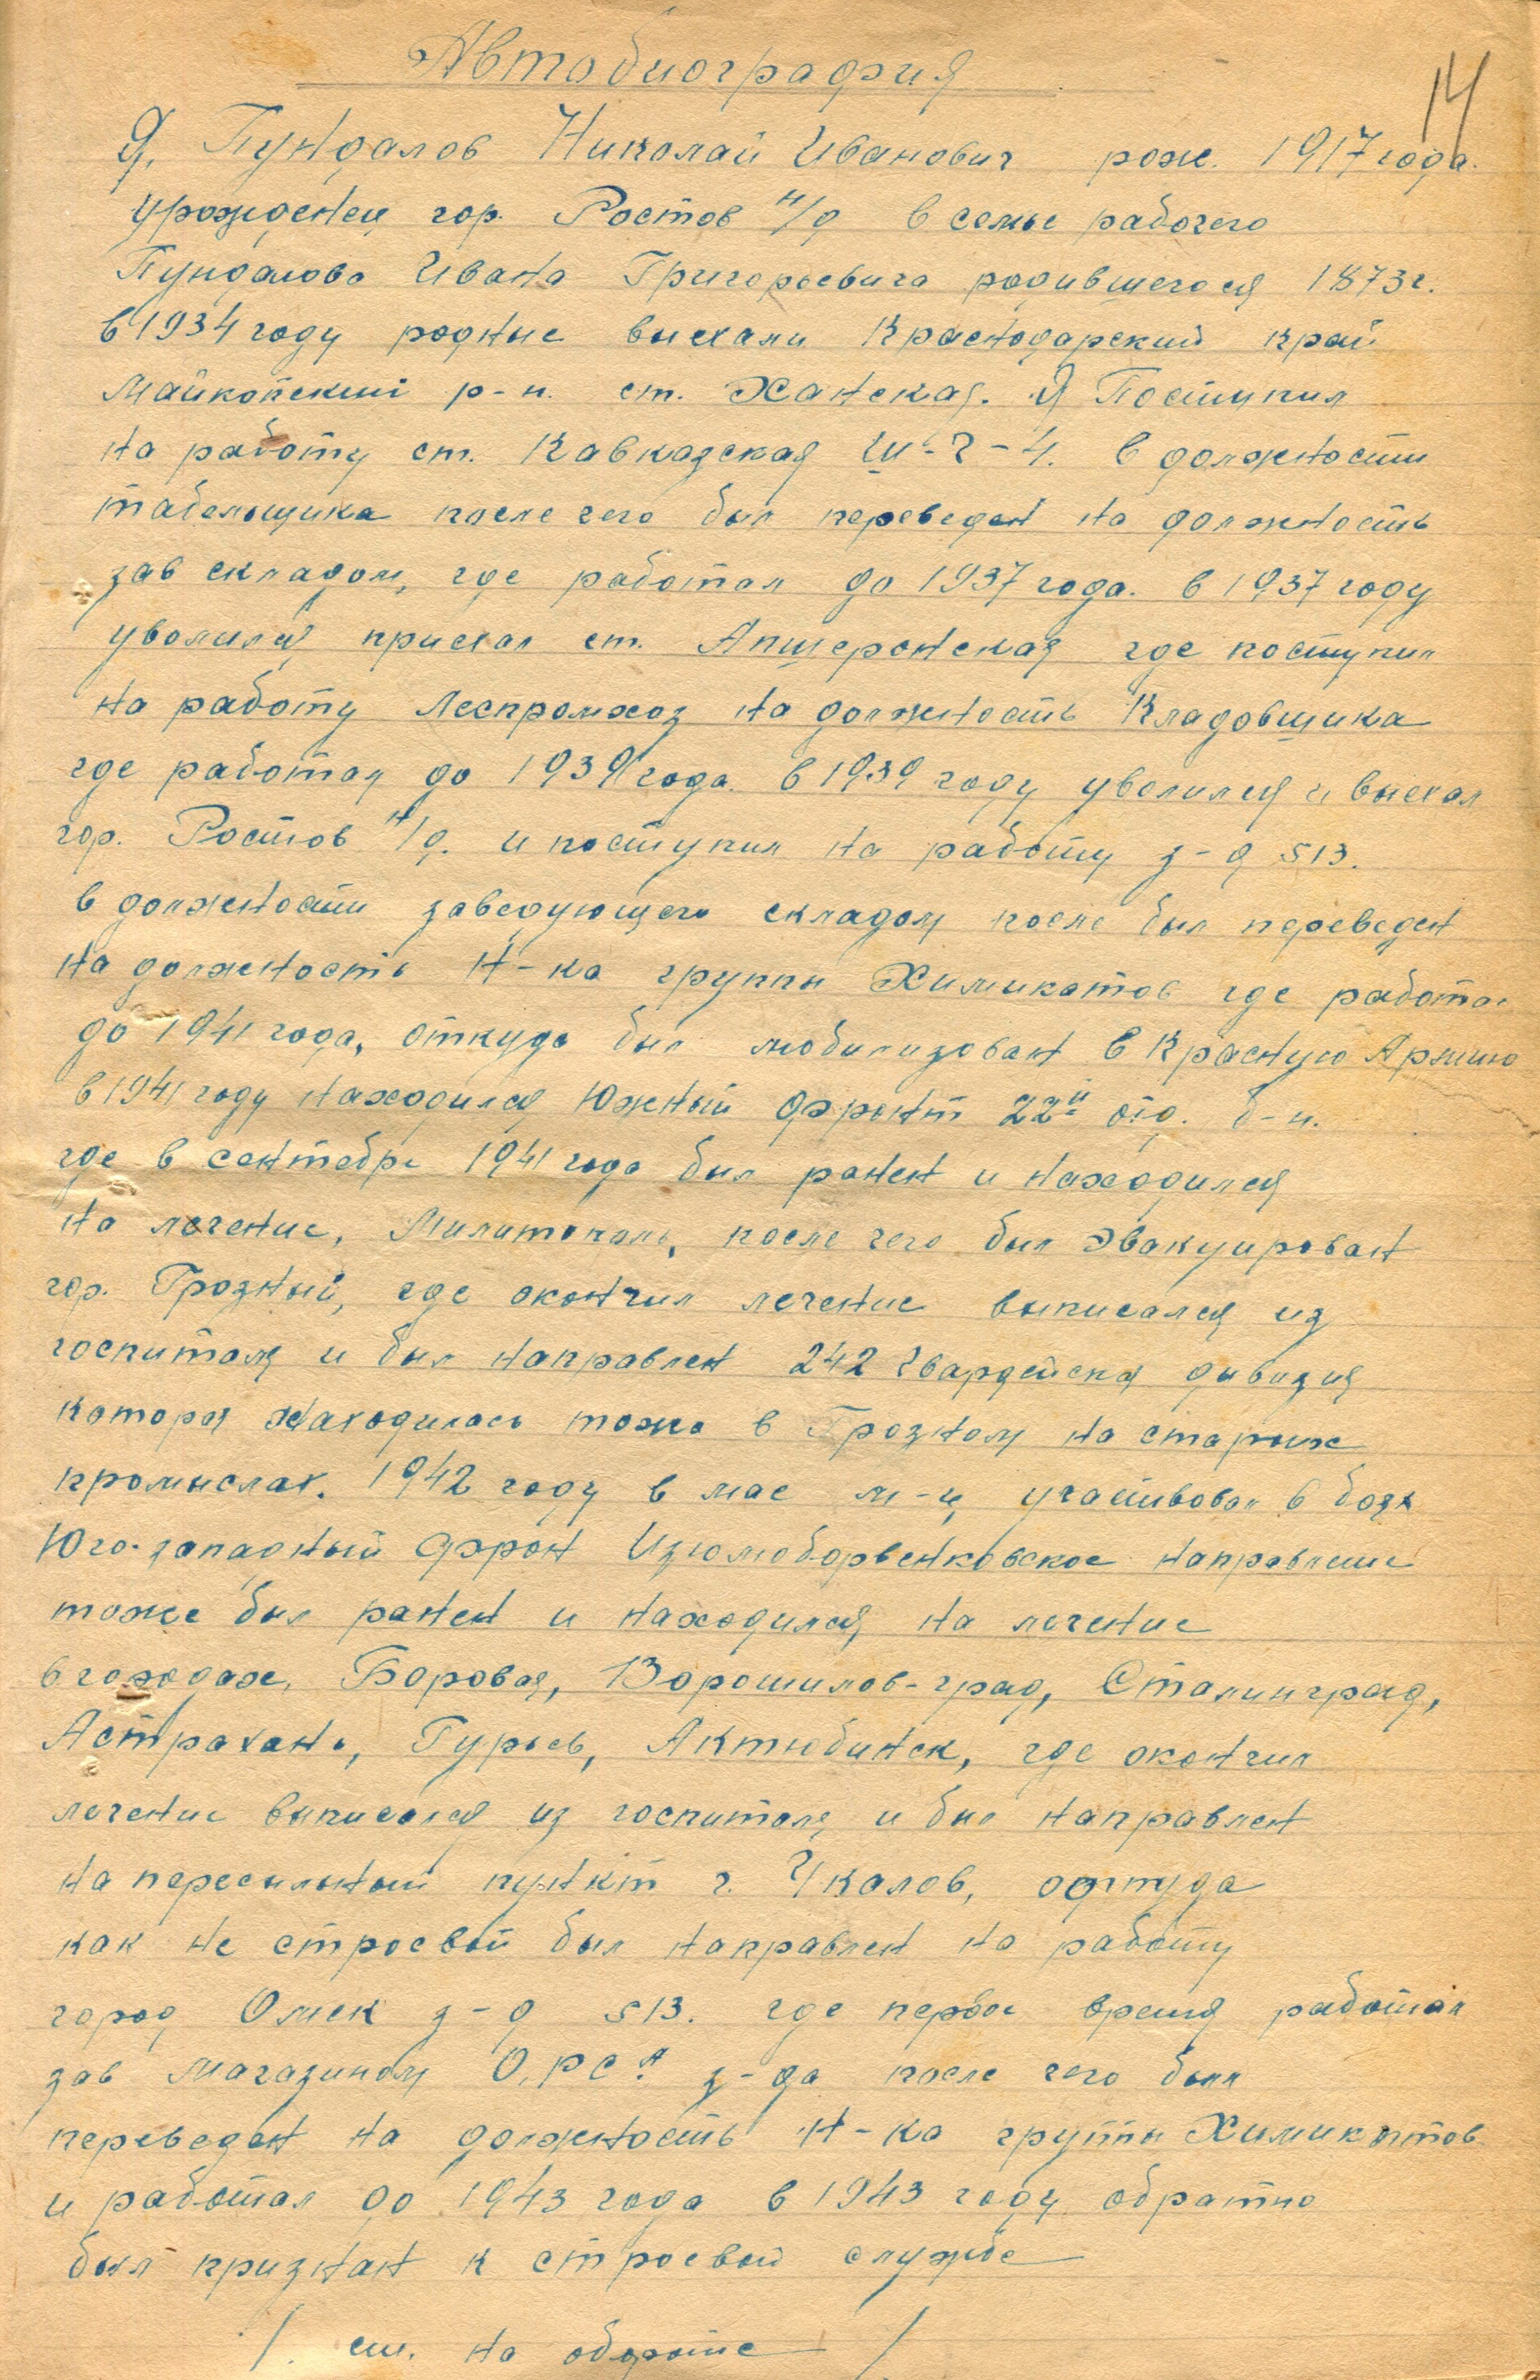 Автобиография
14
Я, Пундалов Николай Иванович рож. 1917 года.
урожденец гор. Ростов н/д в семье рабочего
Пундалова Ивана Григорьевича родившегося 1873 г.
в 1934 году родные выехали Краснодарский край
Майкопский р-н. ст. Ханская. Я Поступил
на работу ст. Кавказская Ш-Ч-4. в должности
табельщика после чего был переведен на должность
зав складом, где работал до 1937 года. в 1937 году
уволился приехал ст. Апшеронская где поступил
на работу Леспромхоз на должность Кладовщика
где работал до 1939 года. в 1939 году уволился и выехал
гор. Ростов н/д. и поступил на работу з-д 513.
в должности заведующего складом после был переведен
на должность Н-ка группы Химикатов где работал
до 1941 года, откуда был мобилизован в Красную Армию
в 1941 году находился Южный фронт 22й отд. б-н.
где в сентябре 1941 года был ранен и находился
на лечение, Милитополь, после чего был эвакуирован
гор. Грозный, где окончил лечение выписался из
госпиталя и был направлен 242 Гвардейска дивизия
котороя находилась тоже в Грозном на старых
промыслах. 1942 году в мае м-ц участвовал в боях
Юго-западный фрон Изюмоборвенковское направление
тоже был ранен и находился на лечение
в городах, Боровая, Ворошилов-град, Сталинград,
Астрахань, Гурьев, Актюбинск, где окончил
лечение выписался из госпиталя и был направлен
на пересыльный пункт г. Чкалов, оттуда
как не строевой был направлен на работу
город Омск з-д 513. где первое время работал
зав магазином О.РСа з-да после чего был
переведен на должность Н-ка группы Химикатов
и работал до 1943 года в 1943 году обратно
был признан к строевой службе
/. см. на обороте /